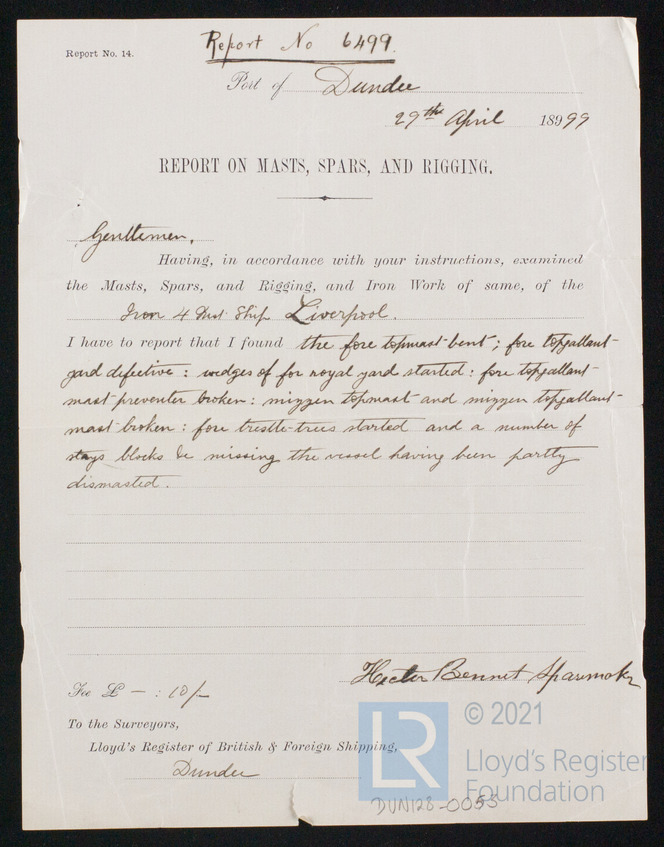 Report No. 14.
Report No 6499.
Port of Dundee
29th April 1899
REPORT ON MASTS, SPARS, AND RIGGING.
Gentlemen,
Having, in accordance with your instructions, examined
the Masts, Spars, and Rigging, and Iron Work of same, of the
Iron 4 Mast Ship Liverpool.
I have to report that I found the fore topmast bent; fore topgallant-
yard defective: wedges of for royal yard started: fore topgallant-
mast preventer broken: mizzen topmast and mizzen topgallant-
mast broken: fore trestle-trees started and a number of
stays blocks &c missing the vessel having been partly
dismasted.
Hector Bennet Sparmaker
Fee £ — : 10/-
To the Surveyors,
Lloyd's Register of British & Foreign Shipping,
Dundee
DUN128-0053
LR
© 2021
Lloyd's Register
Foundation